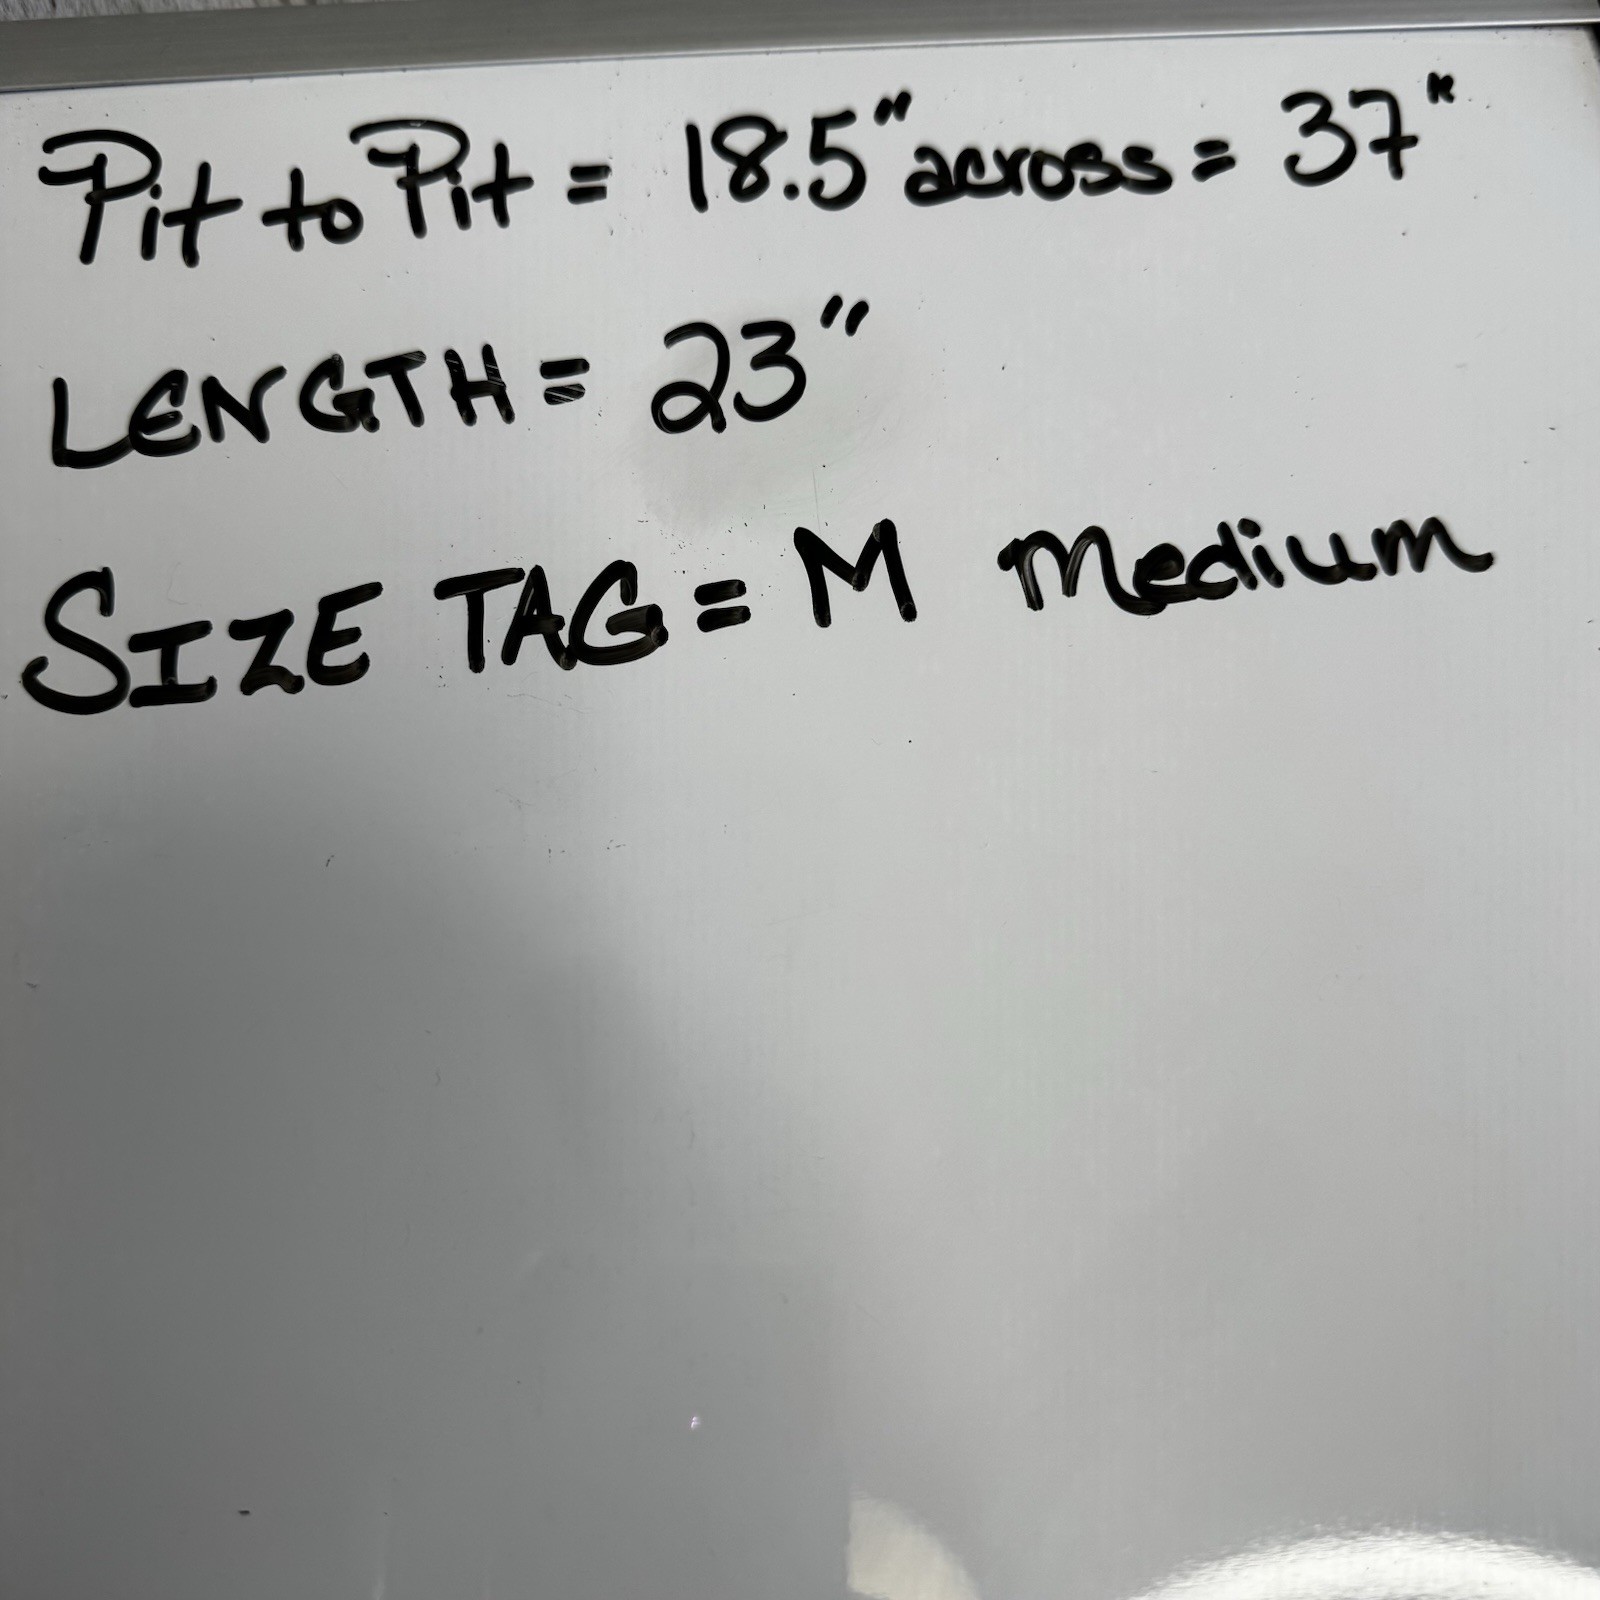 Pit to Pit = 18.5" across = 37"
LENGTH = 23"
SIZE TAG = M Medium